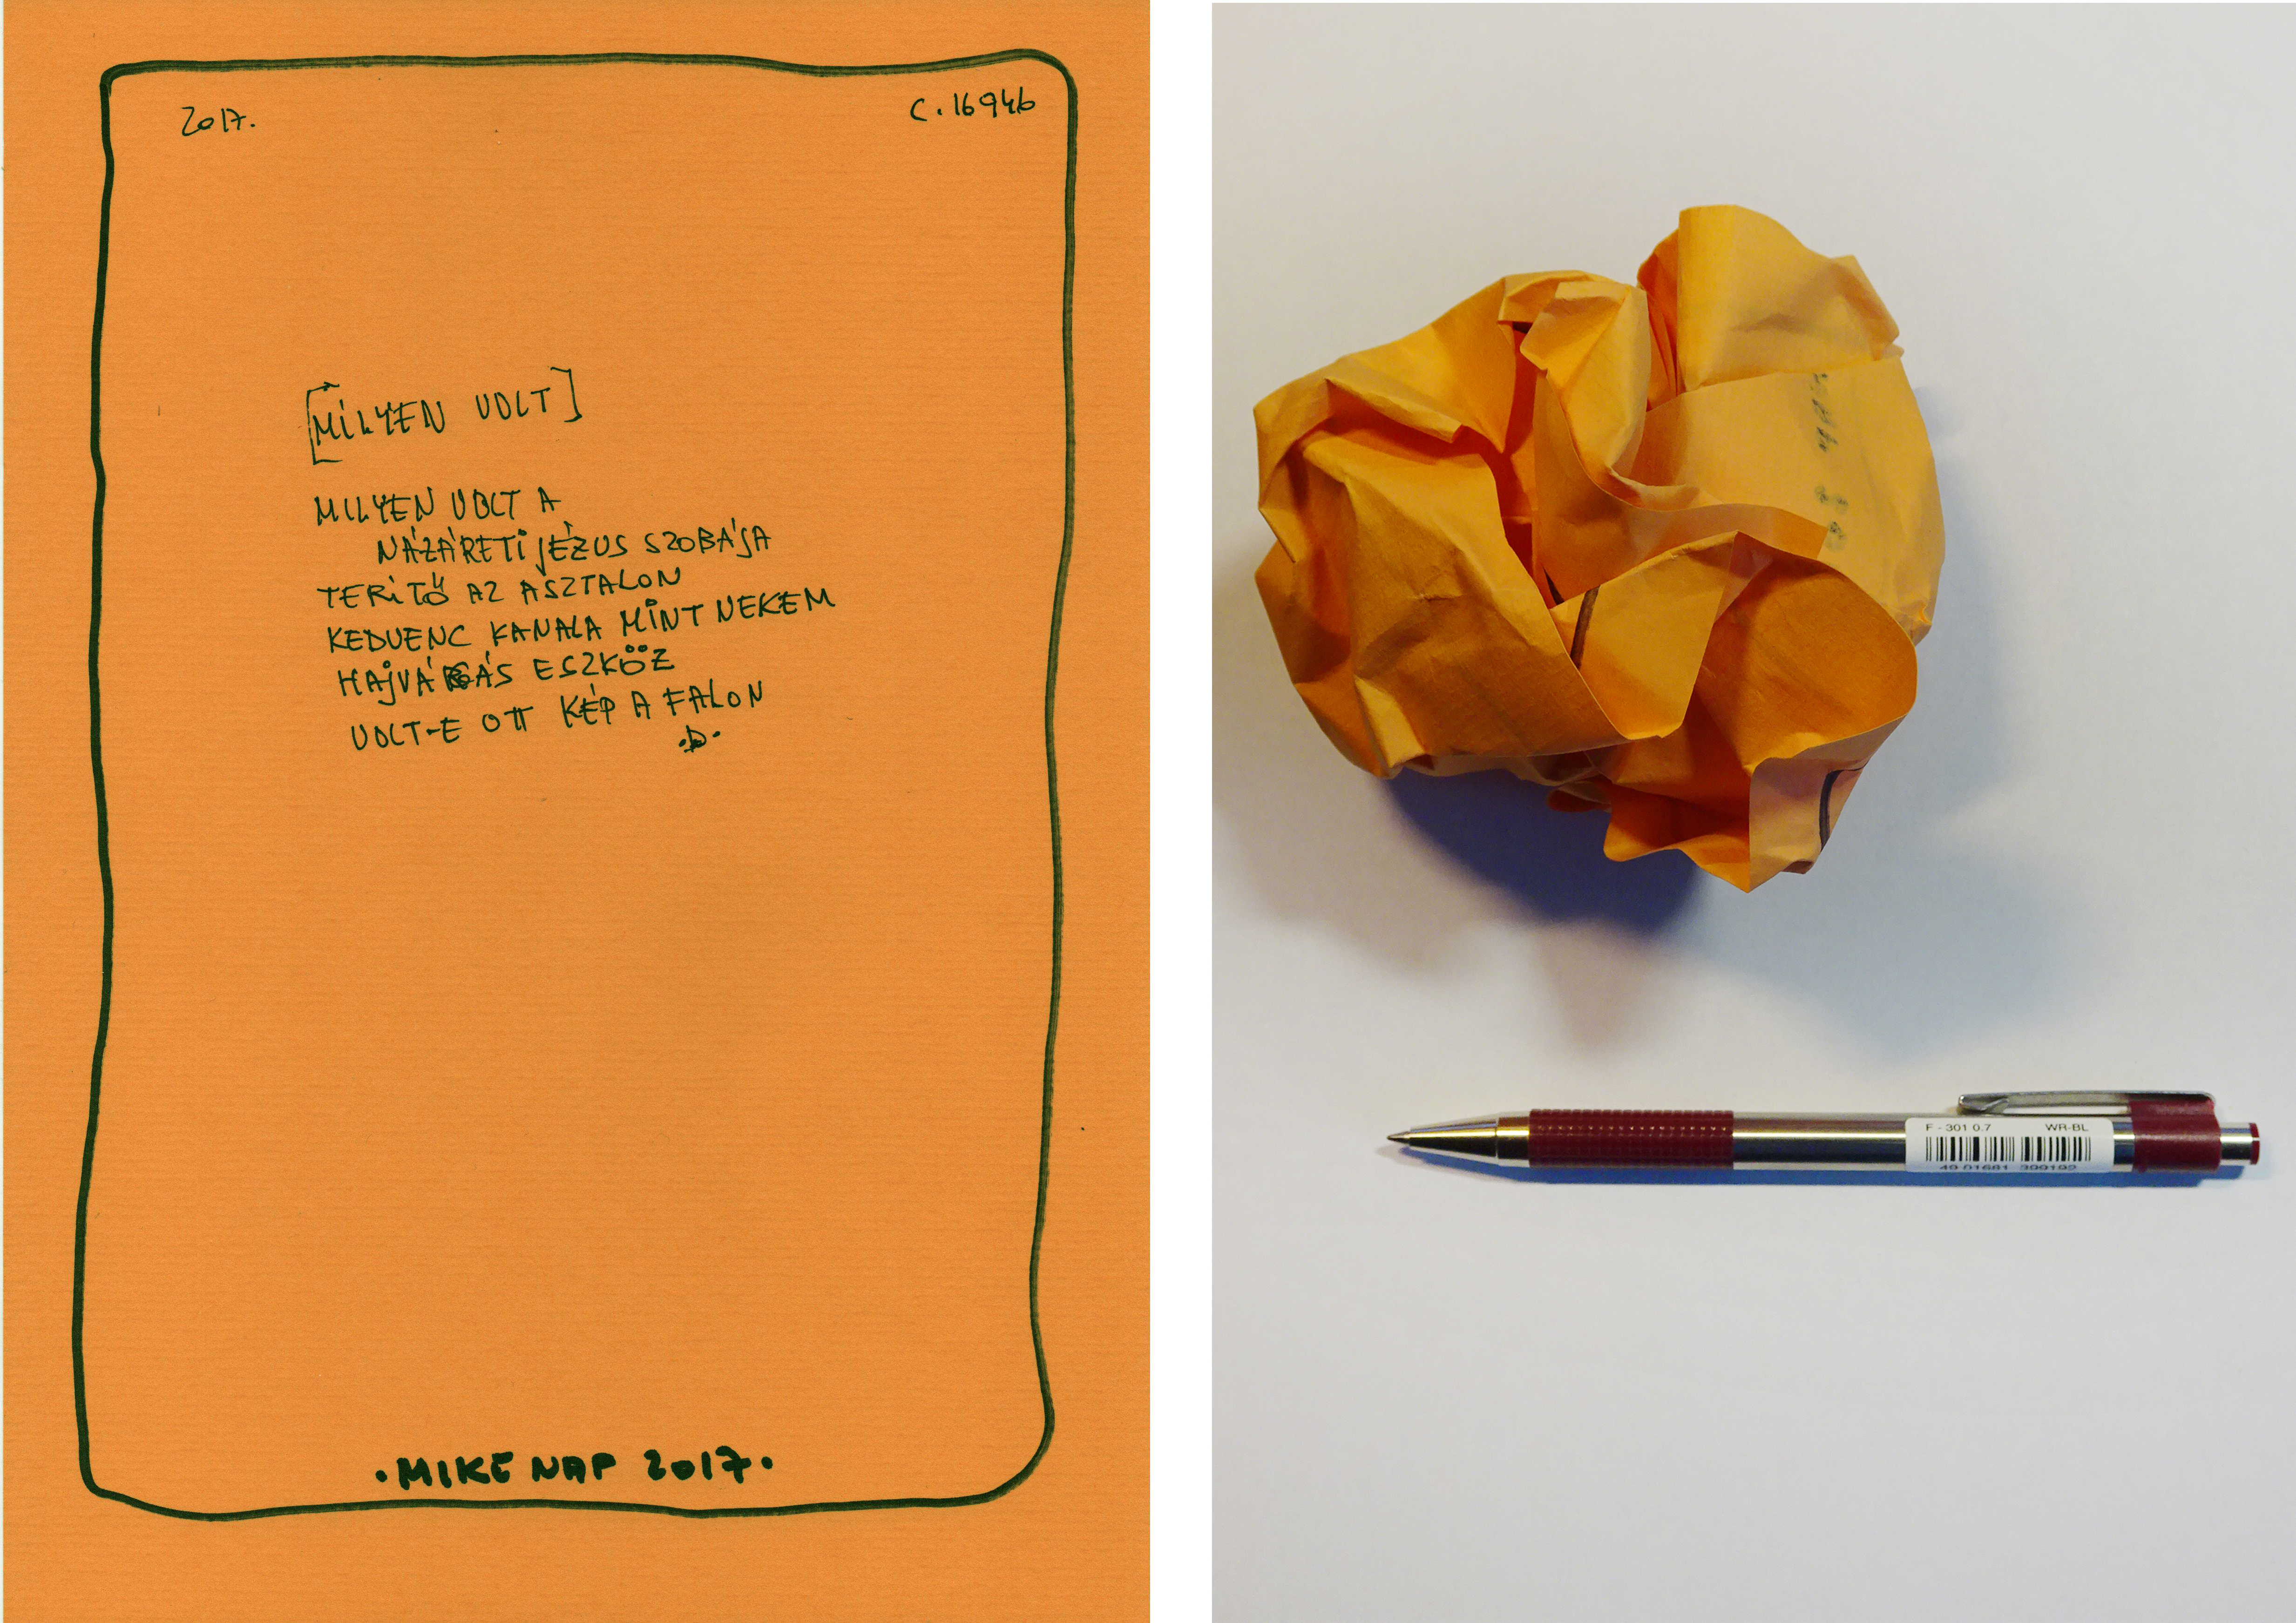 2017.
C.16946
[MILYEN VOLT]
MILYEN VOLT A
NÁZÁRETI JÉZUS SZOBÁJA
TERÍTŐ AZ ASZTALON
KEDVENC KANALA MINT NEKEM
HAJVÁGÁS ESZKÖZ
VOLT-E OTT KÉP A FALON
.D.
.MIKE NAP 2017.
F - 301 0.7 WR-BL
49 01681 399192